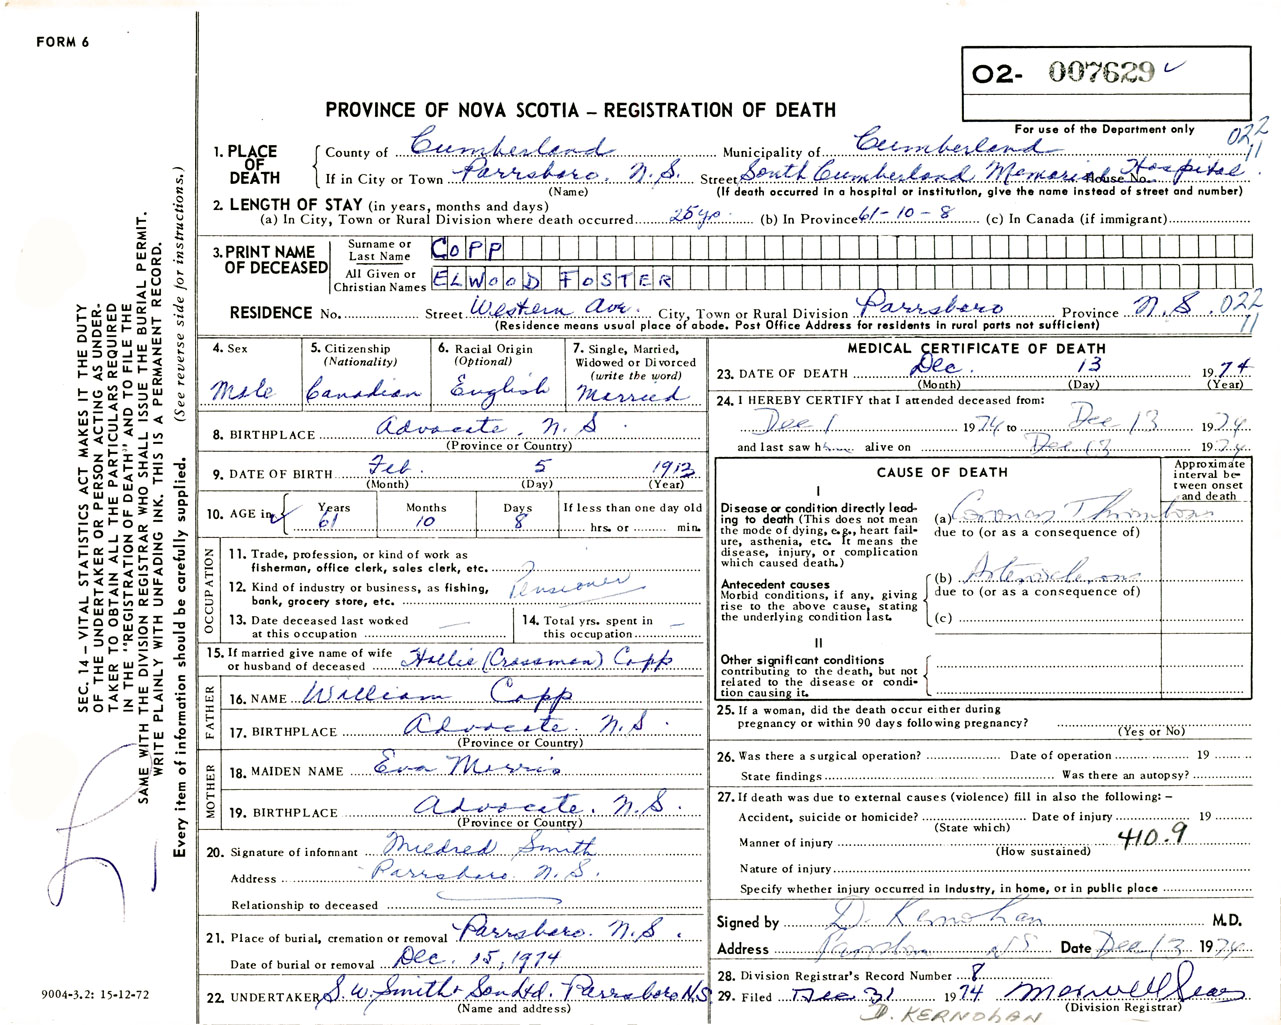 FORM 6
O2- 007629 ✓
PROVINCE OF NOVA SCOTIA – REGISTRATION OF DEATH
For use of the Department only
022
11
1. PLACE OF DEATH
County of Cumberland Municipality of Cumberland
If in City or Town Parrsboro. N.S. Street South Cumberland Memorial House No. Hospital
(Name) (If death occurred in a hospital or institution, give the name instead of street and number)
2. LENGTH OF STAY (in years, months and days)
(a) In City, Town or Rural Division where death occurred 25 yrs. (b) In Province 61-10-8 (c) In Canada (if immigrant)
3. PRINT NAME OF DECEASED
Surname or Last Name COPP
All Given or Christian Names ELWOOD FOSTER
RESIDENCE No. Street Western Ave. City, Town or Rural Division Parrsboro Province N.S. 022
(Residence means usual place of abode. Post Office Address for residents in rural parts not sufficient) 11
4. Sex
Male
5. Citizenship
(Nationality)
Canadian
6. Racial Origin
(Optional)
English
7. Single, Married,
Widowed or Divorced
(write the word)
Married
8. BIRTHPLACE Advocate. N.S.
(Province or Country)
9. DATE OF BIRTH Feb. 5 1913
(Month) (Day) (Year)
10. AGE in ✓ Years Months Days If less than one day old
61 10 8 hrs. or min.
OCCUPATION
11. Trade, profession, or kind of work as
fisherman, office clerk, sales clerk, etc.
12. Kind of industry or business, as fishing,
bank, grocery store, etc. Pensioner
13. Date deceased last worked
at this occupation —
14. Total yrs. spent in
this occupation –
15. If married give name of wife
or husband of deceased Hollie (Crossman) Copp
FATHER
16. NAME William Copp
17. BIRTHPLACE Advocate. N.S.
(Province or Country)
MOTHER
18. MAIDEN NAME Eva Morris
19. BIRTHPLACE Advocate. N.S.
(Province or Country)
20. Signature of informant Mildred Smith
Address Parrsboro. N.S.
Relationship to deceased
21. Place of burial, cremation or removal Parrsboro. N.S.
Date of burial or removal Dec. 15, 1974
22. UNDERTAKER S.W. Smith + Son Ltd. Parrsboro N.S.
(Name and address)
MEDICAL CERTIFICATE OF DEATH
23. DATE OF DEATH Dec. 13 1974
(Month) (Day) (Year)
24. I HEREBY CERTIFY that I attended deceased from:
Dec 1 1974 to Dec 13 1974
and last saw h alive on Dec 13 1974
CAUSE OF DEATH
Approximate
interval be-
tween onset
and death
I
Disease or condition directly lead-
ing to death (This does not mean
the mode of dying, e.g., heart fail-
ure, asthenia, etc. It means the
disease, injury, or complication
which caused death.)
(a) Coronary Thrombosis
due to (or as a consequence of)
Antecedent causes
Morbid conditions, if any, giving
rise to the above cause, stating
the underlying condition last.
(b) Arteriosclerosis
due to (or as a consequence of)
(c)
II
Other significant conditions
contributing to the death, but not
related to the disease or condi-
tion causing it.
25. If a woman, did the death occur either during
pregnancy or within 90 days following pregnancy?
(Yes or No)
26. Was there a surgical operation? Date of operation 19
State findings Was there an autopsy?
27. If death was due to external causes (violence) fill in also the following: –
Accident, suicide or homicide? Date of injury 19
(State which)
Manner of injury 410.9
(How sustained)
Nature of injury
Specify whether injury occurred in industry, in home, or in public place
Signed by D. Kernohan M.D.
Address Parrsboro NS Date Dec 13 1974
28. Division Registrar's Record Number 8
29. Filed Dec 31 1974 Maxwell Sears
(Division Registrar)
D. KERNOHAN
SEC. 14 – VITAL STATISTICS ACT MAKES IT THE DUTY
OF THE UNDERTAKER OR PERSON ACTING AS UNDER-
TAKER TO OBTAIN ALL THE PARTICULARS REQUIRED
IN THE "REGISTRATION OF DEATH" AND TO FILE THE
SAME WITH THE DIVISION REGISTRAR WHO SHALL ISSUE THE BURIAL PERMIT.
WRITE PLAINLY WITH UNFADING INK. THIS IS A PERMANENT RECORD.
Every item of information should be carefully supplied. (See reverse side for instructions.)
9004-3.2: 15-12-72